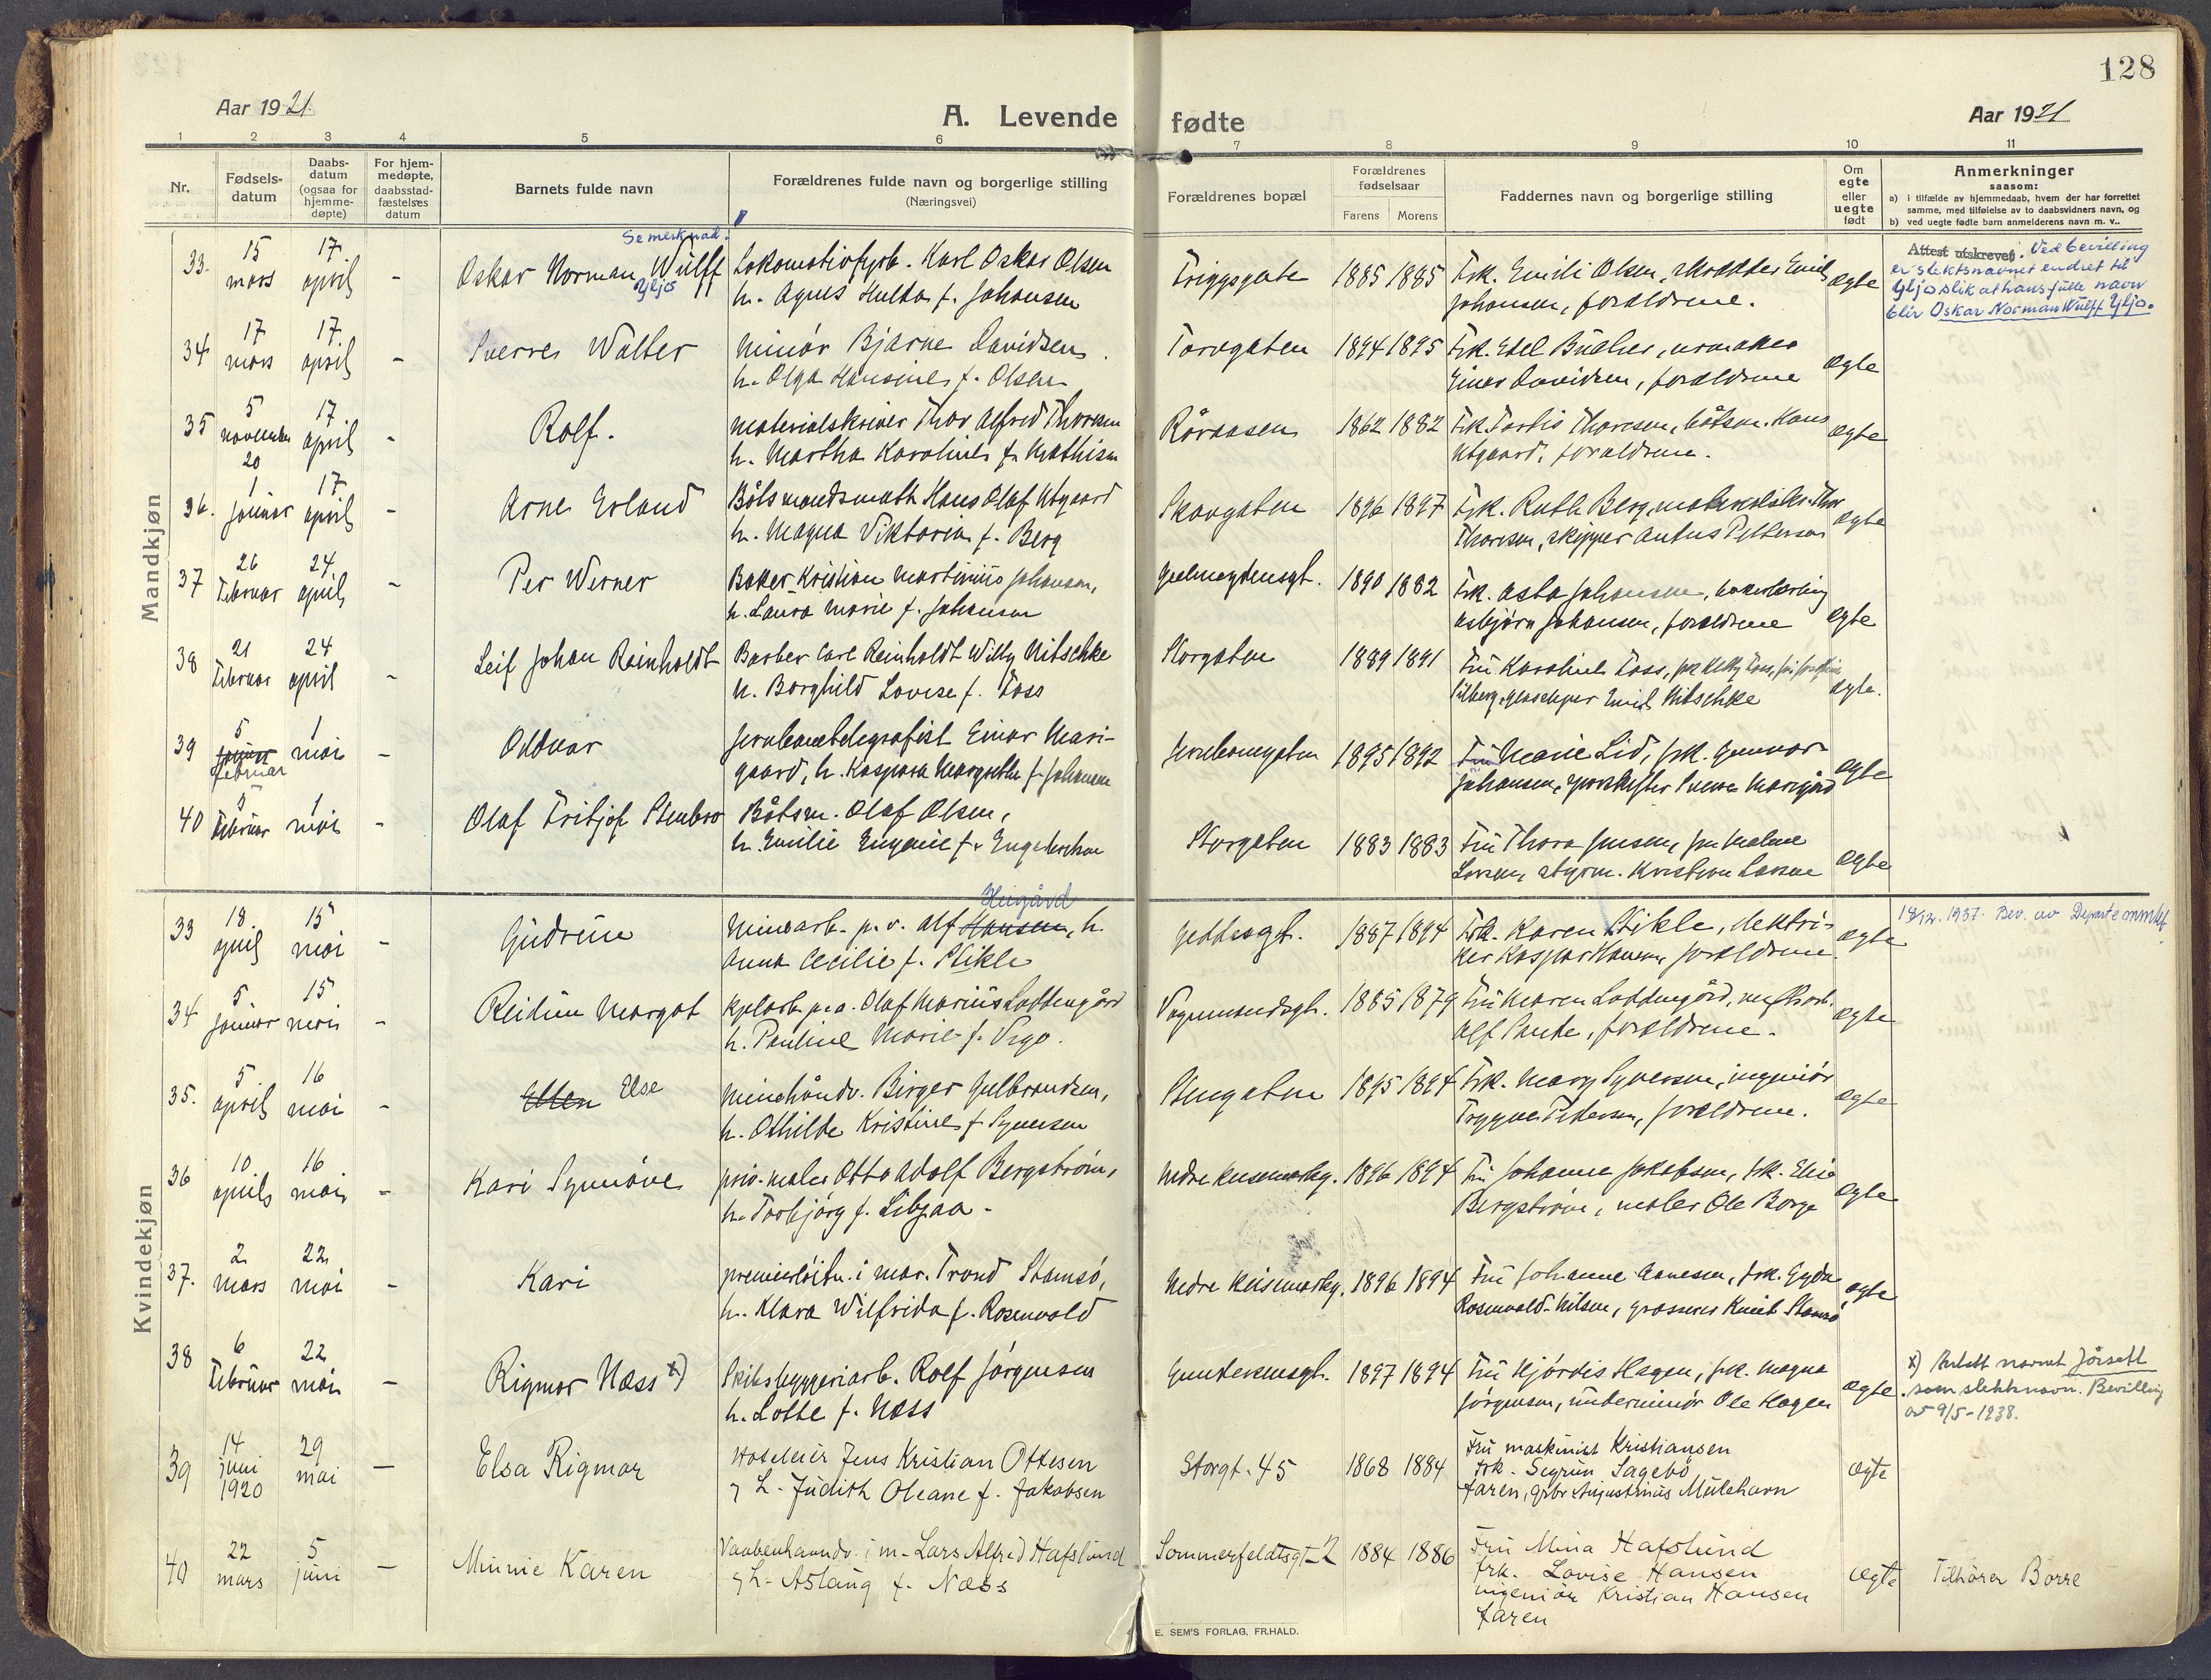 128
Aar 1921.
A. Levende fødte
Aar 1921
1 2 3 4 5 6 7 8 9 10 11
Nr.
Fødselsdatum
Daabsdatum (ogsaa for hjemmedøpte)
For hjemmedøpte, daabsstadfæstelses datum
Barnets fulde navn
Forældrenes fulde navn og borgerlige stilling
(Næringsvei)
Forældrenes bopæl
Forældrenes fødselsaar
Farens Morens
Faddernes navn og borgerlige stilling
Om egte eller uegte født
Anmerkninger
saasom:
a) i tilfælde av hjemmedaab, hvem der har forrettet
samme, med tilføielse av to daabsvidners navn, og
b) ved uegte fødte barn anmelderens navn m. v..
Mandkjøn
Se merknad.
33. 15 mars 17. april - Oskar Norman Wülff Yljo
Lokomotivfyrb. Karl Oskar Olsen
h. Agnes Hulda f. Johansen
Friggsgate 1885 1885
Frk. Emili Olsen, skrædder Emil
Johansen, forældrene.
ægte
Attest utskrevet. Ved bevilling
er slektsnavnet endret til
Yljo slik at hans fulle navn
blir Oskar Norman Wülff Yljo.
34 17 mars 17. april - Sverre Walter
Minør Bjarne Davidsen
h. Olga Hansine f. Olsen
Torvgaten 1894 1895
Frk. Edel Bücher, urmaker
Einar Davidsen, forældrene
ægte
35 5 november 20 17. april - Rolf.
Materialskriver Thor Alfred Thoresen
h. Martha Karoline f. Mathisen
Råraasen 1862 1882
Frk. Tordis Thoresen, båtsm. Hans
Utgaard, forældrene.
ægte
36. 1 januar 17 april - Arne Erland
Båtsmandsmath Hans Olaf Utgaard
h. Magna Viktoria f. Berg
Skovgaten 1896 1897
Frk. Ruth Berg, materialskr. Thor
Thoresen, skipper Antus Pettersen
ægte
37 26 Februar 24. april - Per Werner
Baker Kristian Martinius Johansen,
h. Laura Marie f. Johansen
Gjelmeydensgt. 1890 1882
Frk. Asta Johansen, bakerlærling
Asbjørn Johansen, forældrene
ægte
38 21 Februar 24 april - Leif Johan Reinholdt
Barber Carl Reinholdt Willy Nitschke
h. Borghild Lovise f. Foss
Storgaten 1889 1891
Fru Karoline Foss, frk Ketty Foss,
Emil Nitschke
ægte.
39 5 januar februar 1 mai - Oddvar
Jernbanetelegrafist Einar Mari-
gaard, h. Kaspara Margrethe f. Johansen
Jernbanegaten 1895 1892
Fru Marie Lid, frk. Gunvor
Johansen, Sverre Marigård
ægte
40 5 Februar 1 mai - Olaf Fritjof Stenbro
Båtsm. Olaf Olsen,
h. Emilie Eugenie f. Engebretsen
Storgaten 1883 1883
Fru Thora Jensen, fru Malene
Larsen, styrm. Kristian Larsen
ægte
Kvindekjøn
Haugård
33 18. april 15 mai - Gudrun
Minearb. p.v. Alf Hansen, h.
Anna Cecilie f. Stikle
Geddesgt. 1887 1894
Frk. Karen Stikle, elektri-
ker Kaspar Hansen, forældrene.
ægte
18/12. 1937. Bev. av Departementet.
34 5 januar 15 mai - Reidun Margot
Olaf Marius Loddengård
h. Pauline Marie f. Vigo.
Vagnmandsgt. 1885 1879
Fru Maren Loddengård,
Alf Sande, forældrene.
ægte
35. 5. april 16 mai - Ellen Else
Minehåndv. Birger Gulbrandsen,
h. Othilde Kristine f. Syversen
Stengaten 1895 1894
Frk. Mary Syversen, ingeniør
Trygve Pedersen, forældrene.
ægte
36 10. april 16 mai - Kari Synnøve
priv. maler Otto Adolf Bergstrøm,
h. Torbjørg f. Liby aa.
Nedre Keisemarkg. 1896 1894
Fru Johanne Jakobsen, frk. Elise
Bergstrøm, maler Ole Borge
ægte
37. 2 mars 22 mai - Kari
premierløitn. i mar. Trond Stamsö,
h. Klara Wilfrida f. Rosenvold
Nedre Keisemarkg. 1896 1894
Fru Johanne Aanesen, frk. Gyda
Rosenvold-Nilsen, grosserer Knut Stamsö
ægte
38 6 Februar 22 mai - Rigmor Næss x)
Skibsbyggeriarb. Rolf Jörgensen
h. Lotte f. Næss
Gundersensgt. 1897 1894
Fru Hjördis Hagen, frk. Magna
Jörgensen, underminør Ole Hagen
ægte.
x) Antatt navnet Jörsett
som slektsnavn. Bevilling
av 9/5-1938.
39 14 juni 1920 29 mai - Elsa Rigmor
Hoteleier Jens Kristian Ottesen
og h. Judith Oleane f. Jakobsen
Storgt. 45 1868 1884
Fru maskinist Kristiansen
frk. Sigrun Sagebö
faren, grbr Augustinius Mülehavn
ægte
40 22 mars 5 juni - Minnie Karen
Vaabenhaandv. i m. Lars Alfred Hafslund
og h. Aslaug f. Næss
Sommerfeldtsgt 2 1884 1886
Fru Mina Hafslund
frk. Lovise Hansen
ingeniør Kristian Hansen
faren
ægte
Tilhører Borre
E. SEM'S FORLAG, FR.HALD.